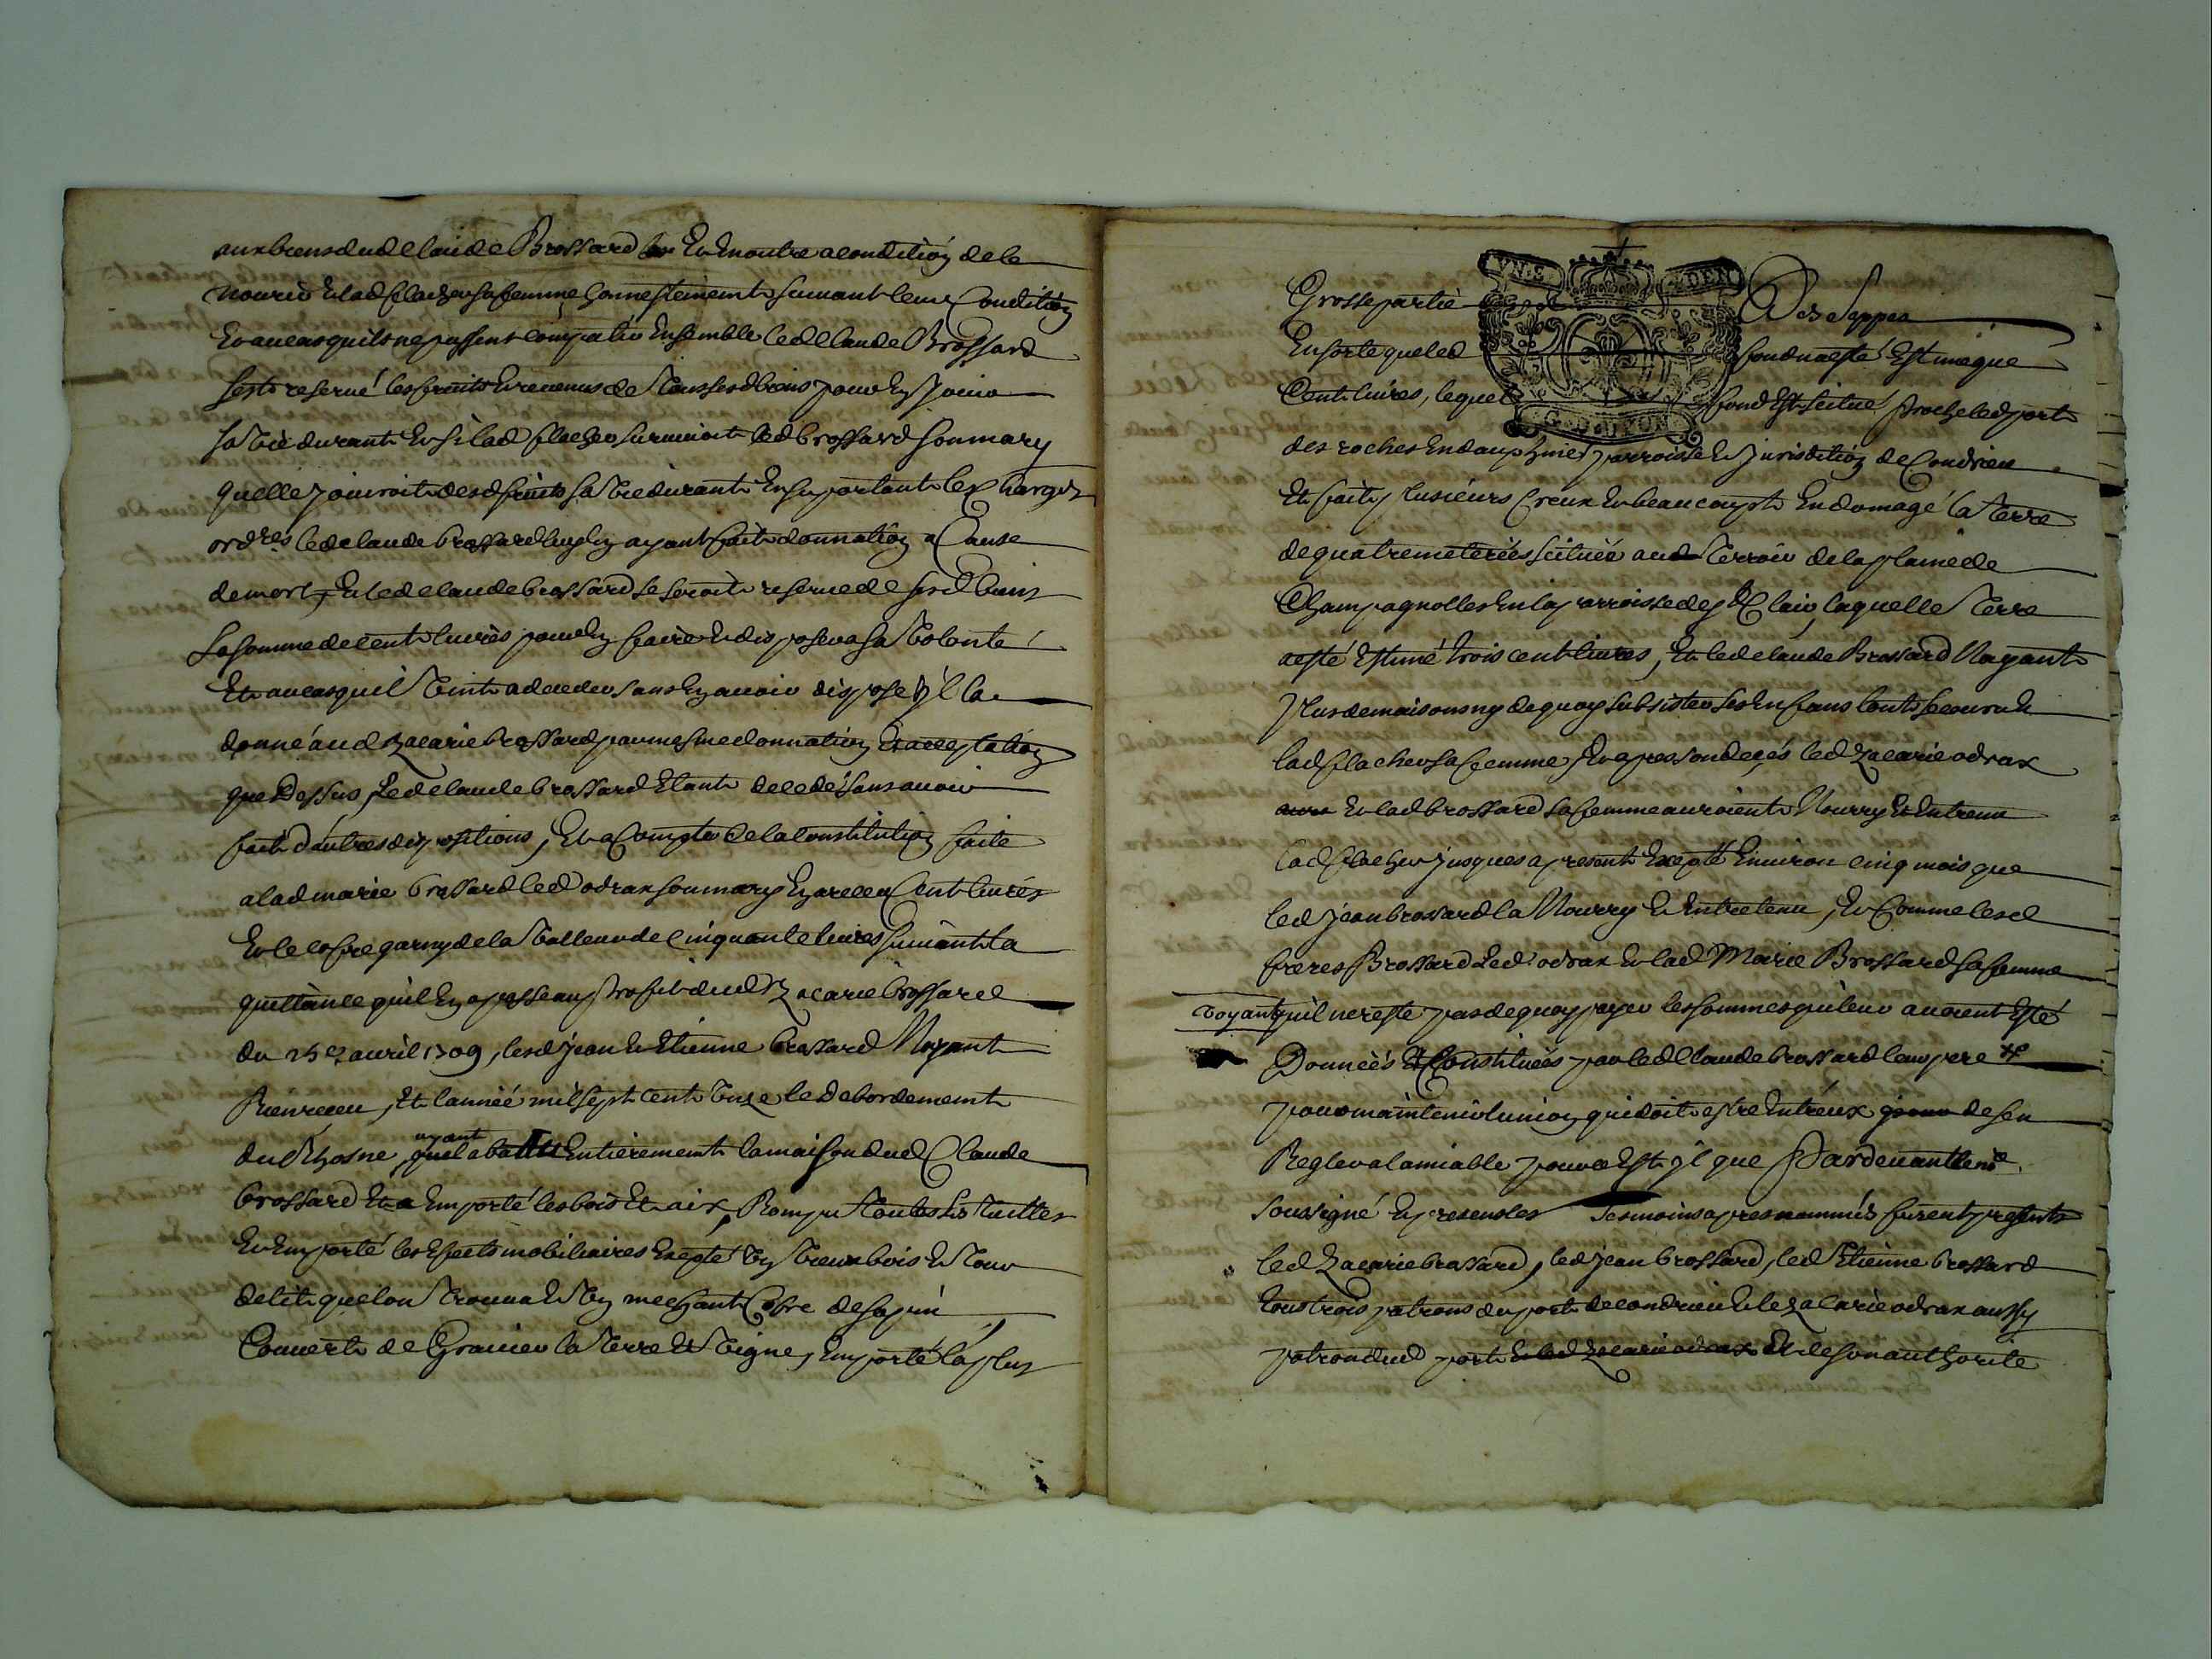 aux biens dud Claude Brossard Et En outre a condition de le
nourir Et lad flacher sa femme honnestement suivant leur Condition
Et au cas quils ne pussent compatir Ensemble led Claude Brossard
sest reservé les fruits Et revenus de tous sesd biens pour En Jouir
sa vie durant Et si lad flacher survivoit led brossard son mary
quelle jouiroit desd fruits sa vie durant En suportant les Charges
ordres led claude brossard luy En ayant fait donnation a Cause
de mort, Et led claude brossard se seroit reservé de sesd biens
La somme de cent livres pour En faire Et disposer a sa volonté
Et au cas quil vint a deceder sans En avoir disposé il la
donné aud Zacarie brossard par mesme donnation Et acceptation
que Dessus, Led claude brossard Etant decedé sans avoir
fait d'autres dispositions, Et a Compte de la Constitution faite
a lad marie brossard led odrax son mary En a receu Cent livres
Et le cofre garny de la valleur de Cinquante livres suivant la
quittance quil En a passé au profit dud Zacarie brossard
du 25e avril 1709, lesd Jean Et Etienne brossard Nayant
Rien receu, Et lannée mil sept cent onze le Debordement
du Rhosne ayant abattu Entierement la maison dud Claude
brossard Et a Emporté les bois Et aix, Rompu toutes les tuilles
Et Emporté les Efects mobiliaires Excepté un vieux bois Et tour
de lit que lon trouva Et un mechant Cofre de sapin
Couvert de Gravier la terre Et vigne, Emporté la plus
VN.S DEN
Grosse partie Des seppes
En sorte que led fond na esté Estimé que
Cent livres, lequel fond Est scitué proche led port
G. DE LYON
des roches En dauphiné parroisse Et Jurisdition de Condrieu
Et fait plusieurs Creux Et beaucoupt Endomagé la terre
de quatre meterées scituée au terroir de la plaine de
Champagnolles En la parroisse de St Clair, laquelle terre
a esté Estimé trois cent livres, Et led claude Brossard Nayant
plus de maisons ny de quoy subsister ses Enfans lont secouru Et
lad flacher sa femme, Et apres son decés led Zacarie odrax
Et lad brossard sa femme auroient Nourry Et Entrenu
lad flacher jusques a present Excepté Environ cinq mois que
led jean brossard la Nourry Et Entretenu, Et Comme lesd
freres Brossard Led odrax Et lad Marie Brossard sa femme
voyant quil ne reste pas de quoy payer les sommes qui leur avoient Esté
Donneés Et Constituées par led Claude brossard leur pere
pour maintenir lunion qui doit estre Entreux de sen
Regler a lamiable pour ce Est il que Pardevant le nre
soussigné En presence des tesmoins apres nommés furent presents
led Zacarie brassard, led jean brossard, led Etienne brossard
tous trois patrons du port de condrieu Et le Zacarie odrax aussy
patron dud port Et led Zacarie odrax Et de son authorité